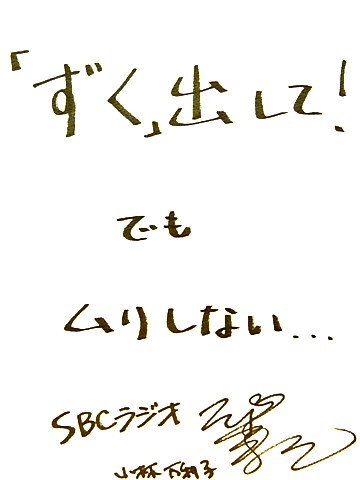 「ずく」出して!
でも
ムリしない...
SBCラジオ
小林